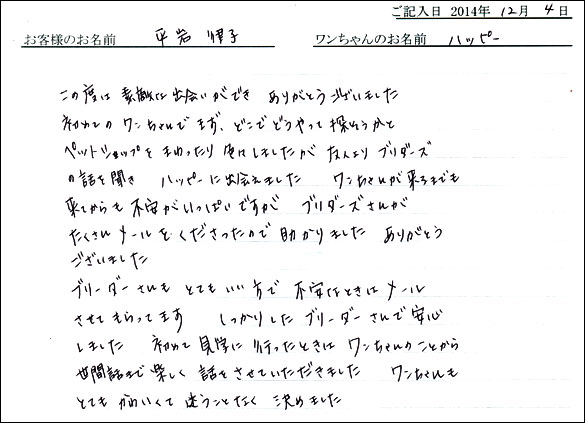 ご記入日 2014年 12月 4日
お客様のお名前 平岩 子 ワンちゃんのお名前 ハッピー
この度は 素敵な出会いができ ありがとうございました
初めての ワンちゃんで まず、どこでどうやって 探そうかと
ペットショップを まわったり 色々しましたが 友人より ブリダーズ
の話を聞き ハッピーに出会えました ワンちゃんが 来るまでも
来てからも 不安がいっぱいですが ブリダーズさんが
たくさん メールを くださったので 助かりました ありがとう
ございました
ブリーダーさんも とても いい方で 不安なときは メール
させてもらってます しっかりした ブリーダーさんで 安心
しました 初めて 見学に 行ったときは ワンちゃんの ことから
世間話まで 楽しく 話を させていただきました ワンちゃんも
とても かわいくて 迷うことなく 決めました